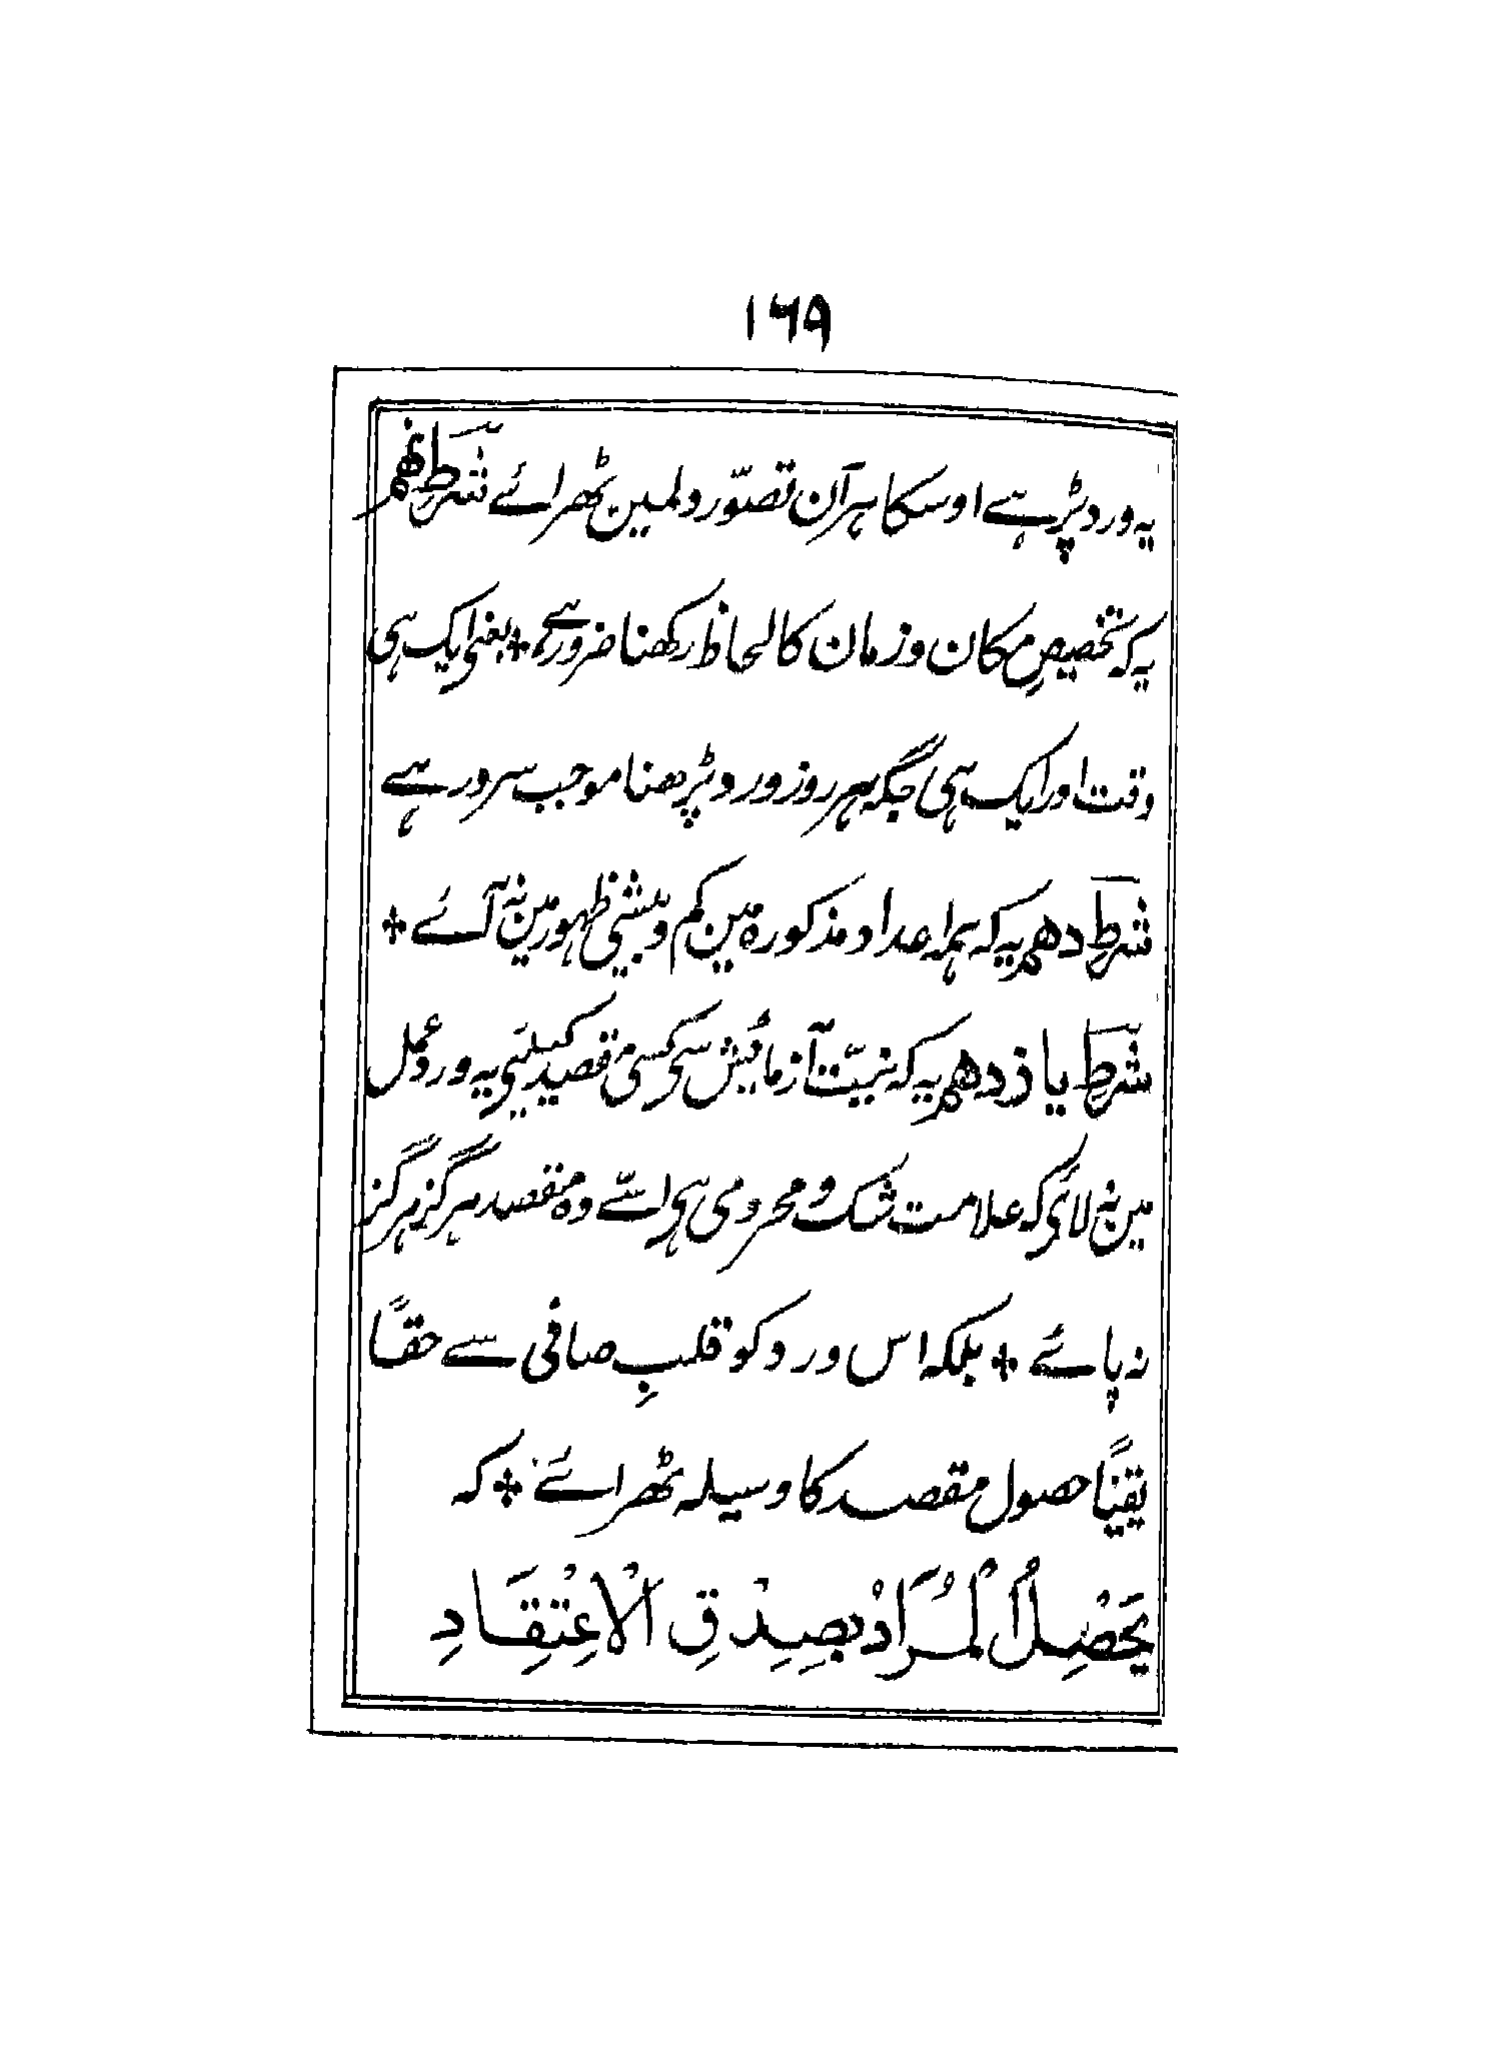 ۱۶۹
یہ ورد پڑہے اوسکا ہر آن تصوّر دلمین ٹھرائے شَرط نُہم
یہ کہ تخصیصِ مکان و زمان کا لحاظ رکھنا ضرور ہے ÷ یعنی ایک ہی
وقت اور ایک ہی جگہ ہر روز ورد پڑھنا موجب سرور ہے
شرط دھم یہ کہ اعداد مذکورہ مین کم و بیشی ظہور مین نہ آئے ÷
شرط یازدھم یہ کہ نیّت آزمائیش سی کسی مقصد کیلئی یہ ورد عمل
مین نہ لائی کہ علامت شک و محرومی ہی اسّے وہ مقصد ہرگز ہرگز
نہ پائے ÷ بلکہ اس ورد کو قلبِ صافی سے حقاً
یقیناً حصول مقصد کا وسیلہ ٹھرائے ÷ کہ
يَحْصِلُ الْمُرَادُ بِصِدْقِ الْاِعْتِقَادِ